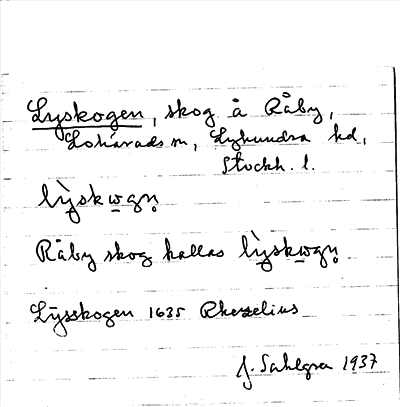 Lyskogen, skog å Råby,
Lohärads sn, Lyhundra hd,
Stockh. l.
lỳskwgṇ
Råby skog kallas lỳskwgṇ.
Lysskogen 1635 Rhezelius
J. Sahlgren 1937